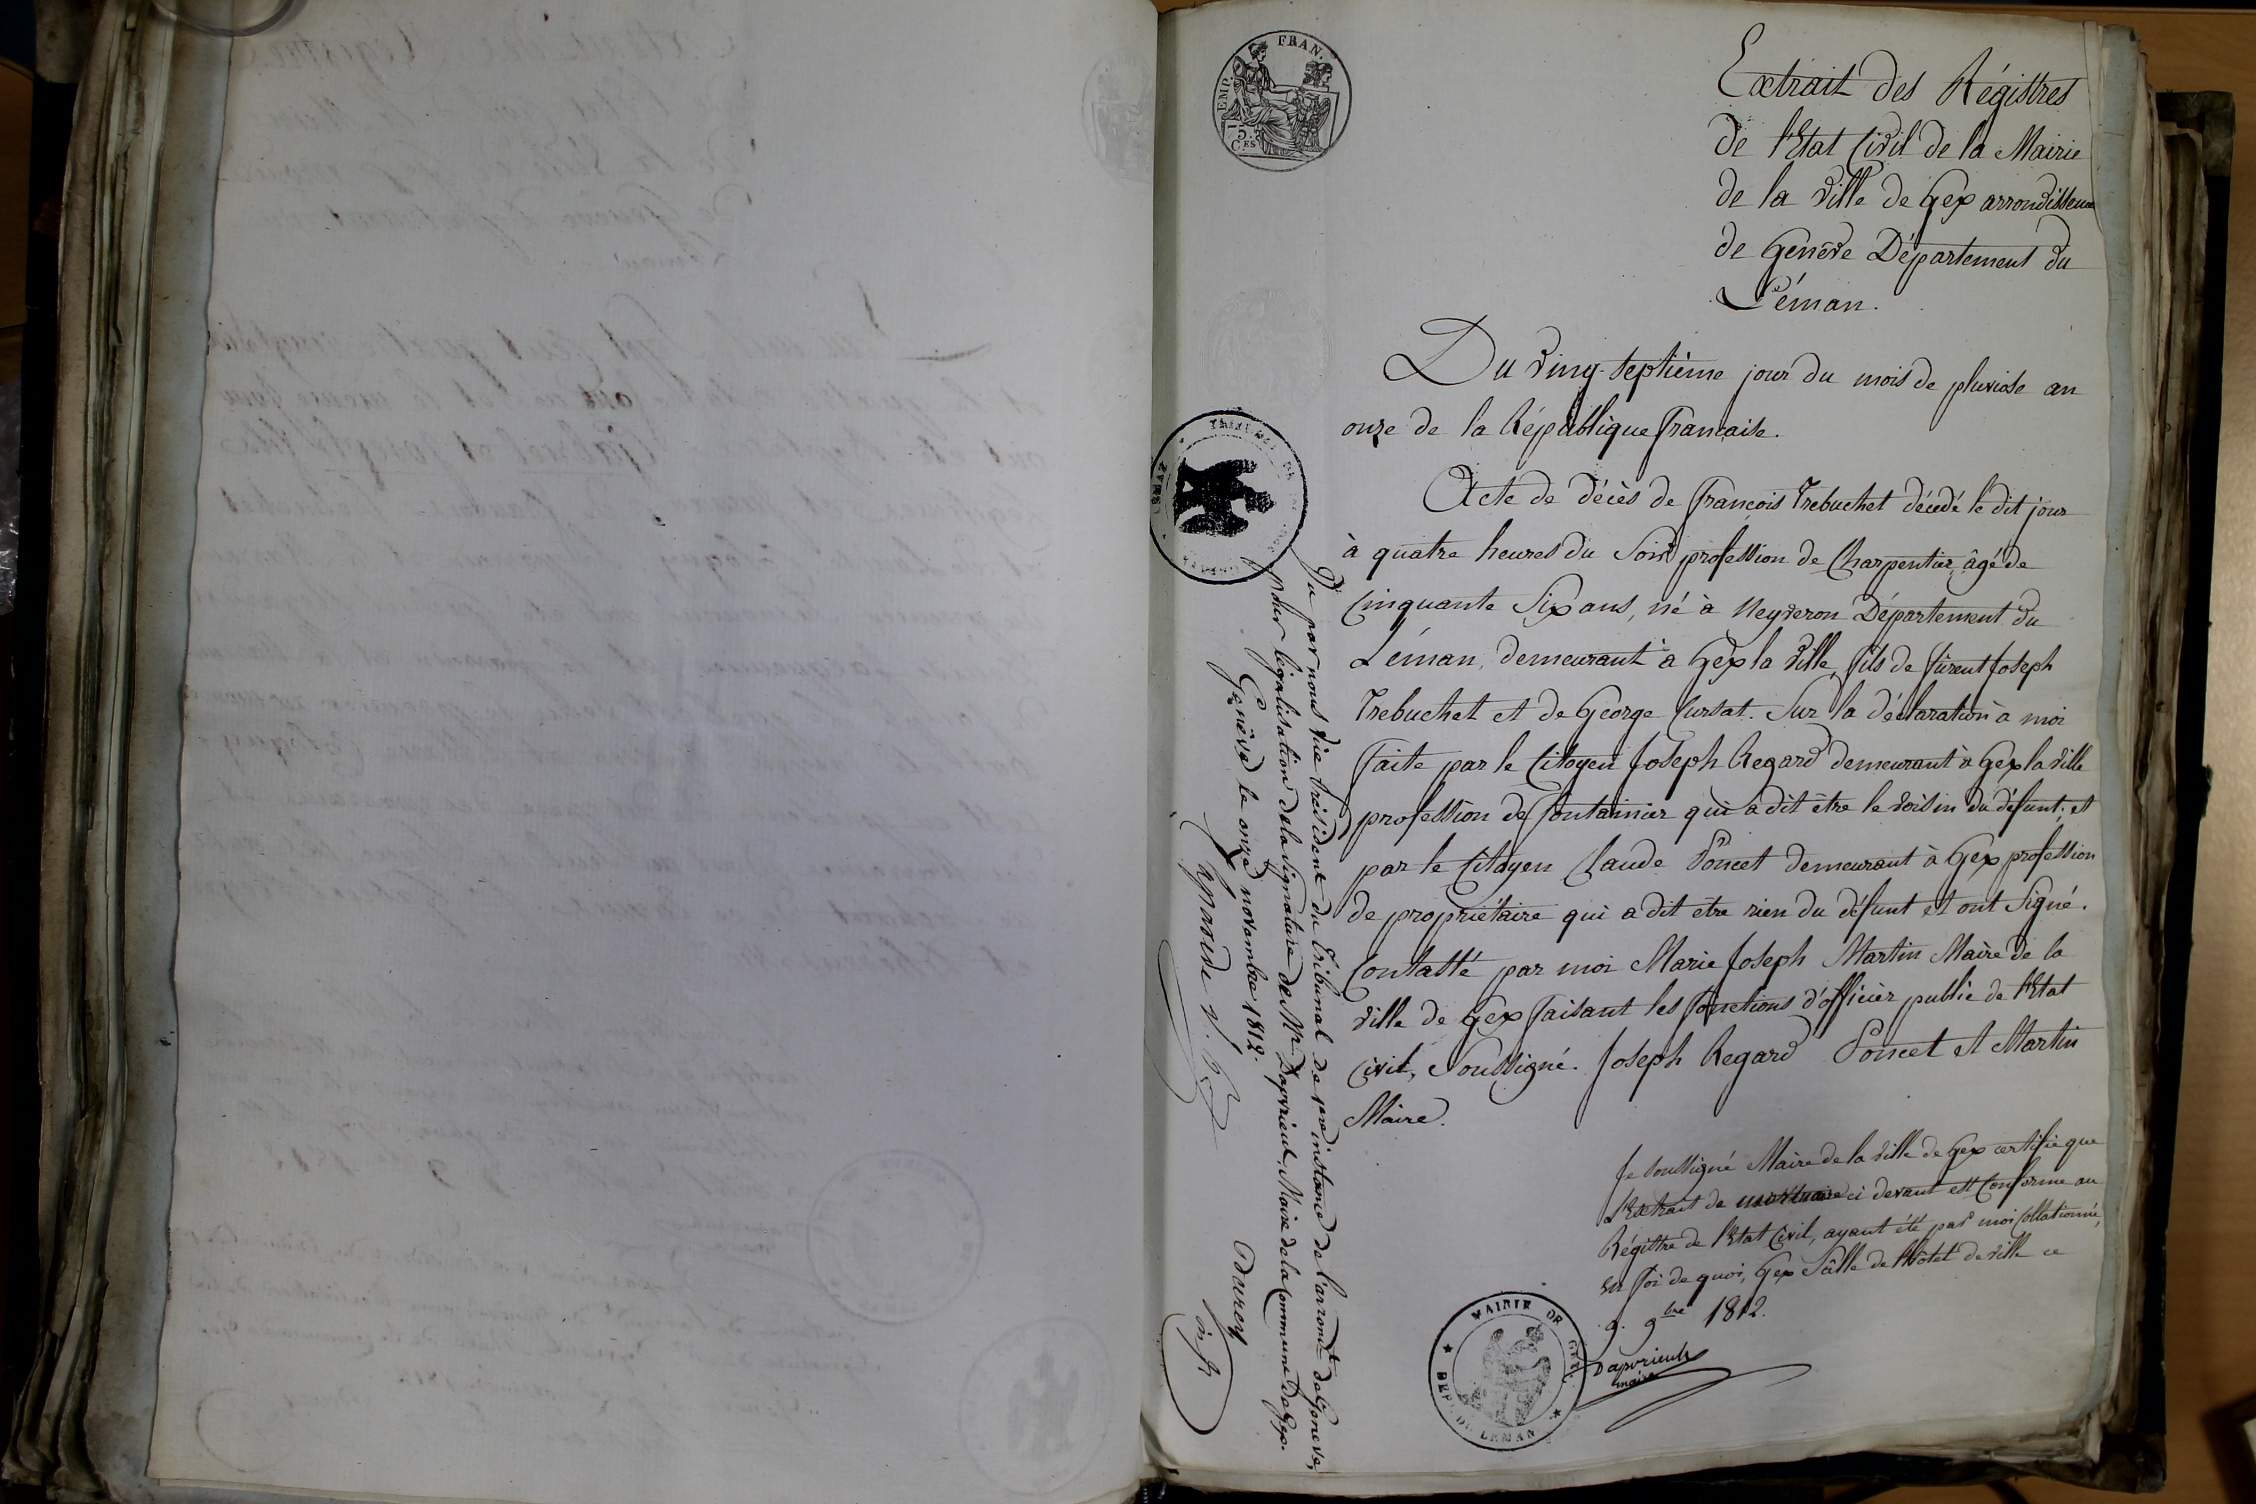 EMP. FRAN.
75.
C.ES
Extrait des Régistres
de l'Etat Civil de la Mairie
de la ville de Gex arrondissem
de Genève Département du
Léman.
Du ving-septième jour du mois de pluviose an
onze de la République francaise.
Acte de décès de francois Trebuchet décédé le dit jour
à quatre heures du Soir profession de Charpentier, âgé de
Cinquante Six ans, né à Neyveron Département du
Léman, demeurant à Gex la ville, fils de fürent Joseph
Trebuchet et de George Cursat. Sur la déclaration à moi
faite par le Citoyen Joseph Regard demeurant à Gex la ville
profession de fontainier qui a dit être le voisin du défunt; et
par le Citoyen Claude Poncet demeurant à Gex profession
de propriétaire qui a dit etre rien du défunt et ont Signé.
Constatté par moi Marie Joseph Martin Maire de la
ville de Gex faisant les fonctions d'officier public de l'Etat
Civil, Soussigné. Joseph Regard Poncet et Martin
Maire.
Je soussigné Maire de la ville de Gex certifie que
L'Extrait de mortuaire ci devant est Conforme au
Régistre de l'Etat Civil, ayant été par moi Collationné,
en foi de quoi, Gex Sâlle de l'hôtel de ville ce
9. 9bre 1812.
Dapvrieulx
maire
MAIRIE DE GEX.
DEP. DU LEMAN
Vu par nous vice Président du Tribunal de 1re instance de l'arrondt de Geneve,
pour légalisation de la signature de Mr. Dapvrieulx, Maire de la Commune de Gex.
Genève le onze novembre 1812.